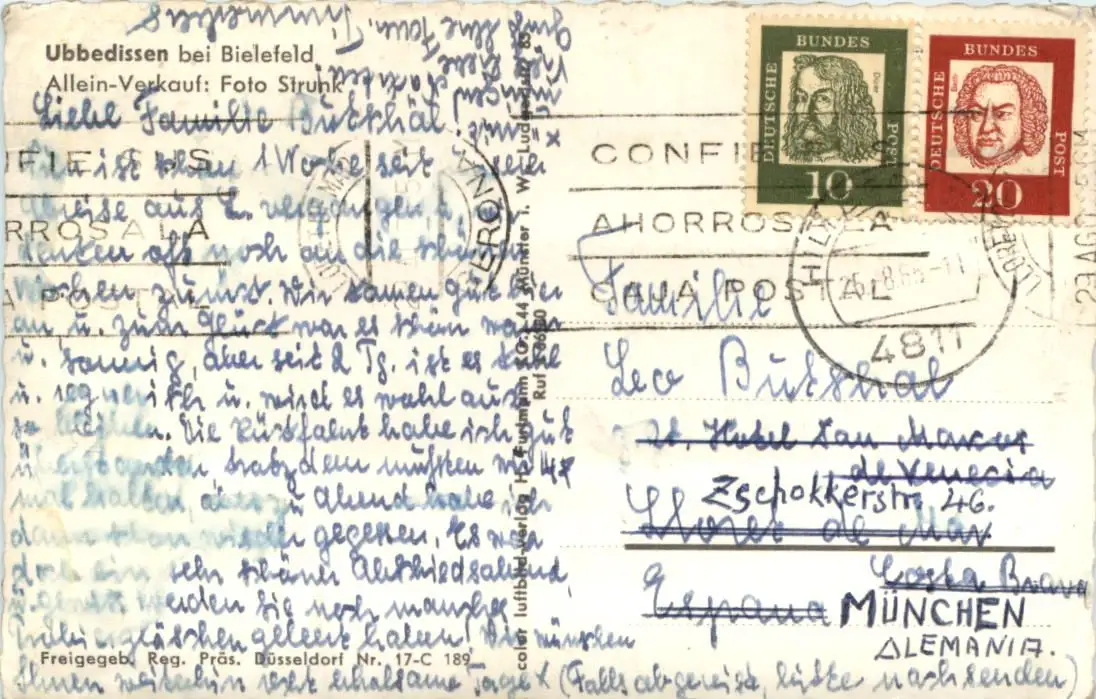 Ubbedissen bei Bielefeld
Allein-Verkauf: Foto Strunk
Liebe Familie Butthal!
ist schon 1 Woche seit
Abreise aus L. vergangen u.
denken oft noch an die schönen
Wochen zurück. Wir kamen gut hier
an u. zum Glück war es schön warm
u. sonnig, aber seit 2 Tg. ist es kühl
u. regnerisch u. wird es wohl auch
so bleiben. Die Rückfahrt habe ich gut
überstanden trotzdem mußten wir 14
mal halten, aber zu Abend habe ich
dann schon wieder gegessen. Es war
doch ein sehr schöner Abschiedsabend
u. gewiß werden Sie noch manches
geleert haben! Wir wünschen
Ihnen weiterhin recht erholsame Tage x (Falls abgereist, bitte nachsenden)
Freigegeb. Reg. Präs. Düsseldorf Nr. 17-C 189
x und
Ihre Fam. Timmerhus
color luftbild-verlag H. Fuhrmann KG. 44 Münster i. W. Ludgeriplatz
Ruf
DEUTSCHE BUNDES POST
Dürer
10
DEUTSCHE BUNDES POST
Bach
20
CONFIE SUS
AHORROS A LA
CAJA POSTAL
4811
29 AGO
Familie
Leo Butthal
Hotel San Marcos
de Venecia
Zschokkerstr. 46.
Lloret de Mar
Costa Brava
Espana
MÜNCHEN
ALEMANIA.